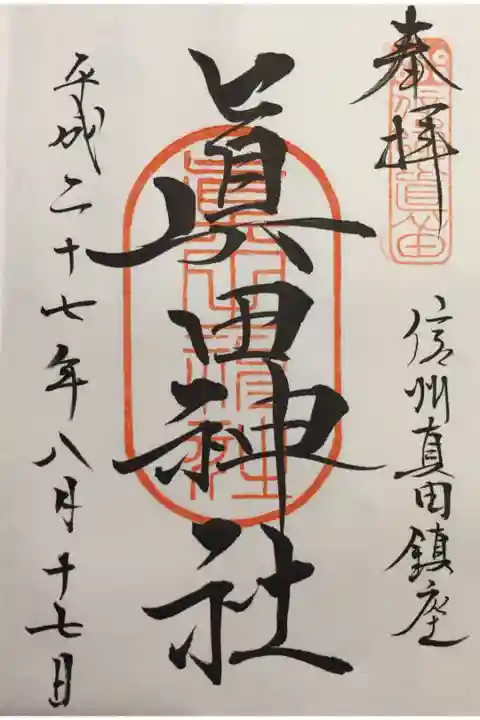 奉拝
信州真田鎮座
眞田神社
平成二十七年八月十七日